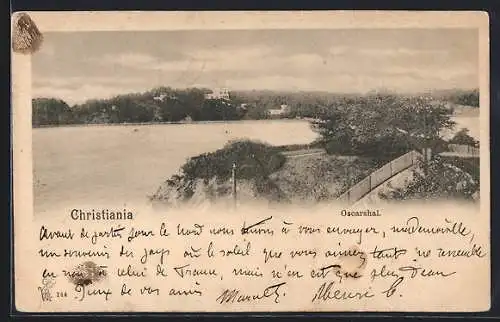 Christiania
Oscarshal.
Avant de partir pour le Nord nous tenons à vous envoyer, mademoiselle,
un souvenir du pays où le soleil que vous aimez tant ne ressemble
en rien à celui de France, mais n'en est que plus beau
Deux de vos amis Henri C.
244